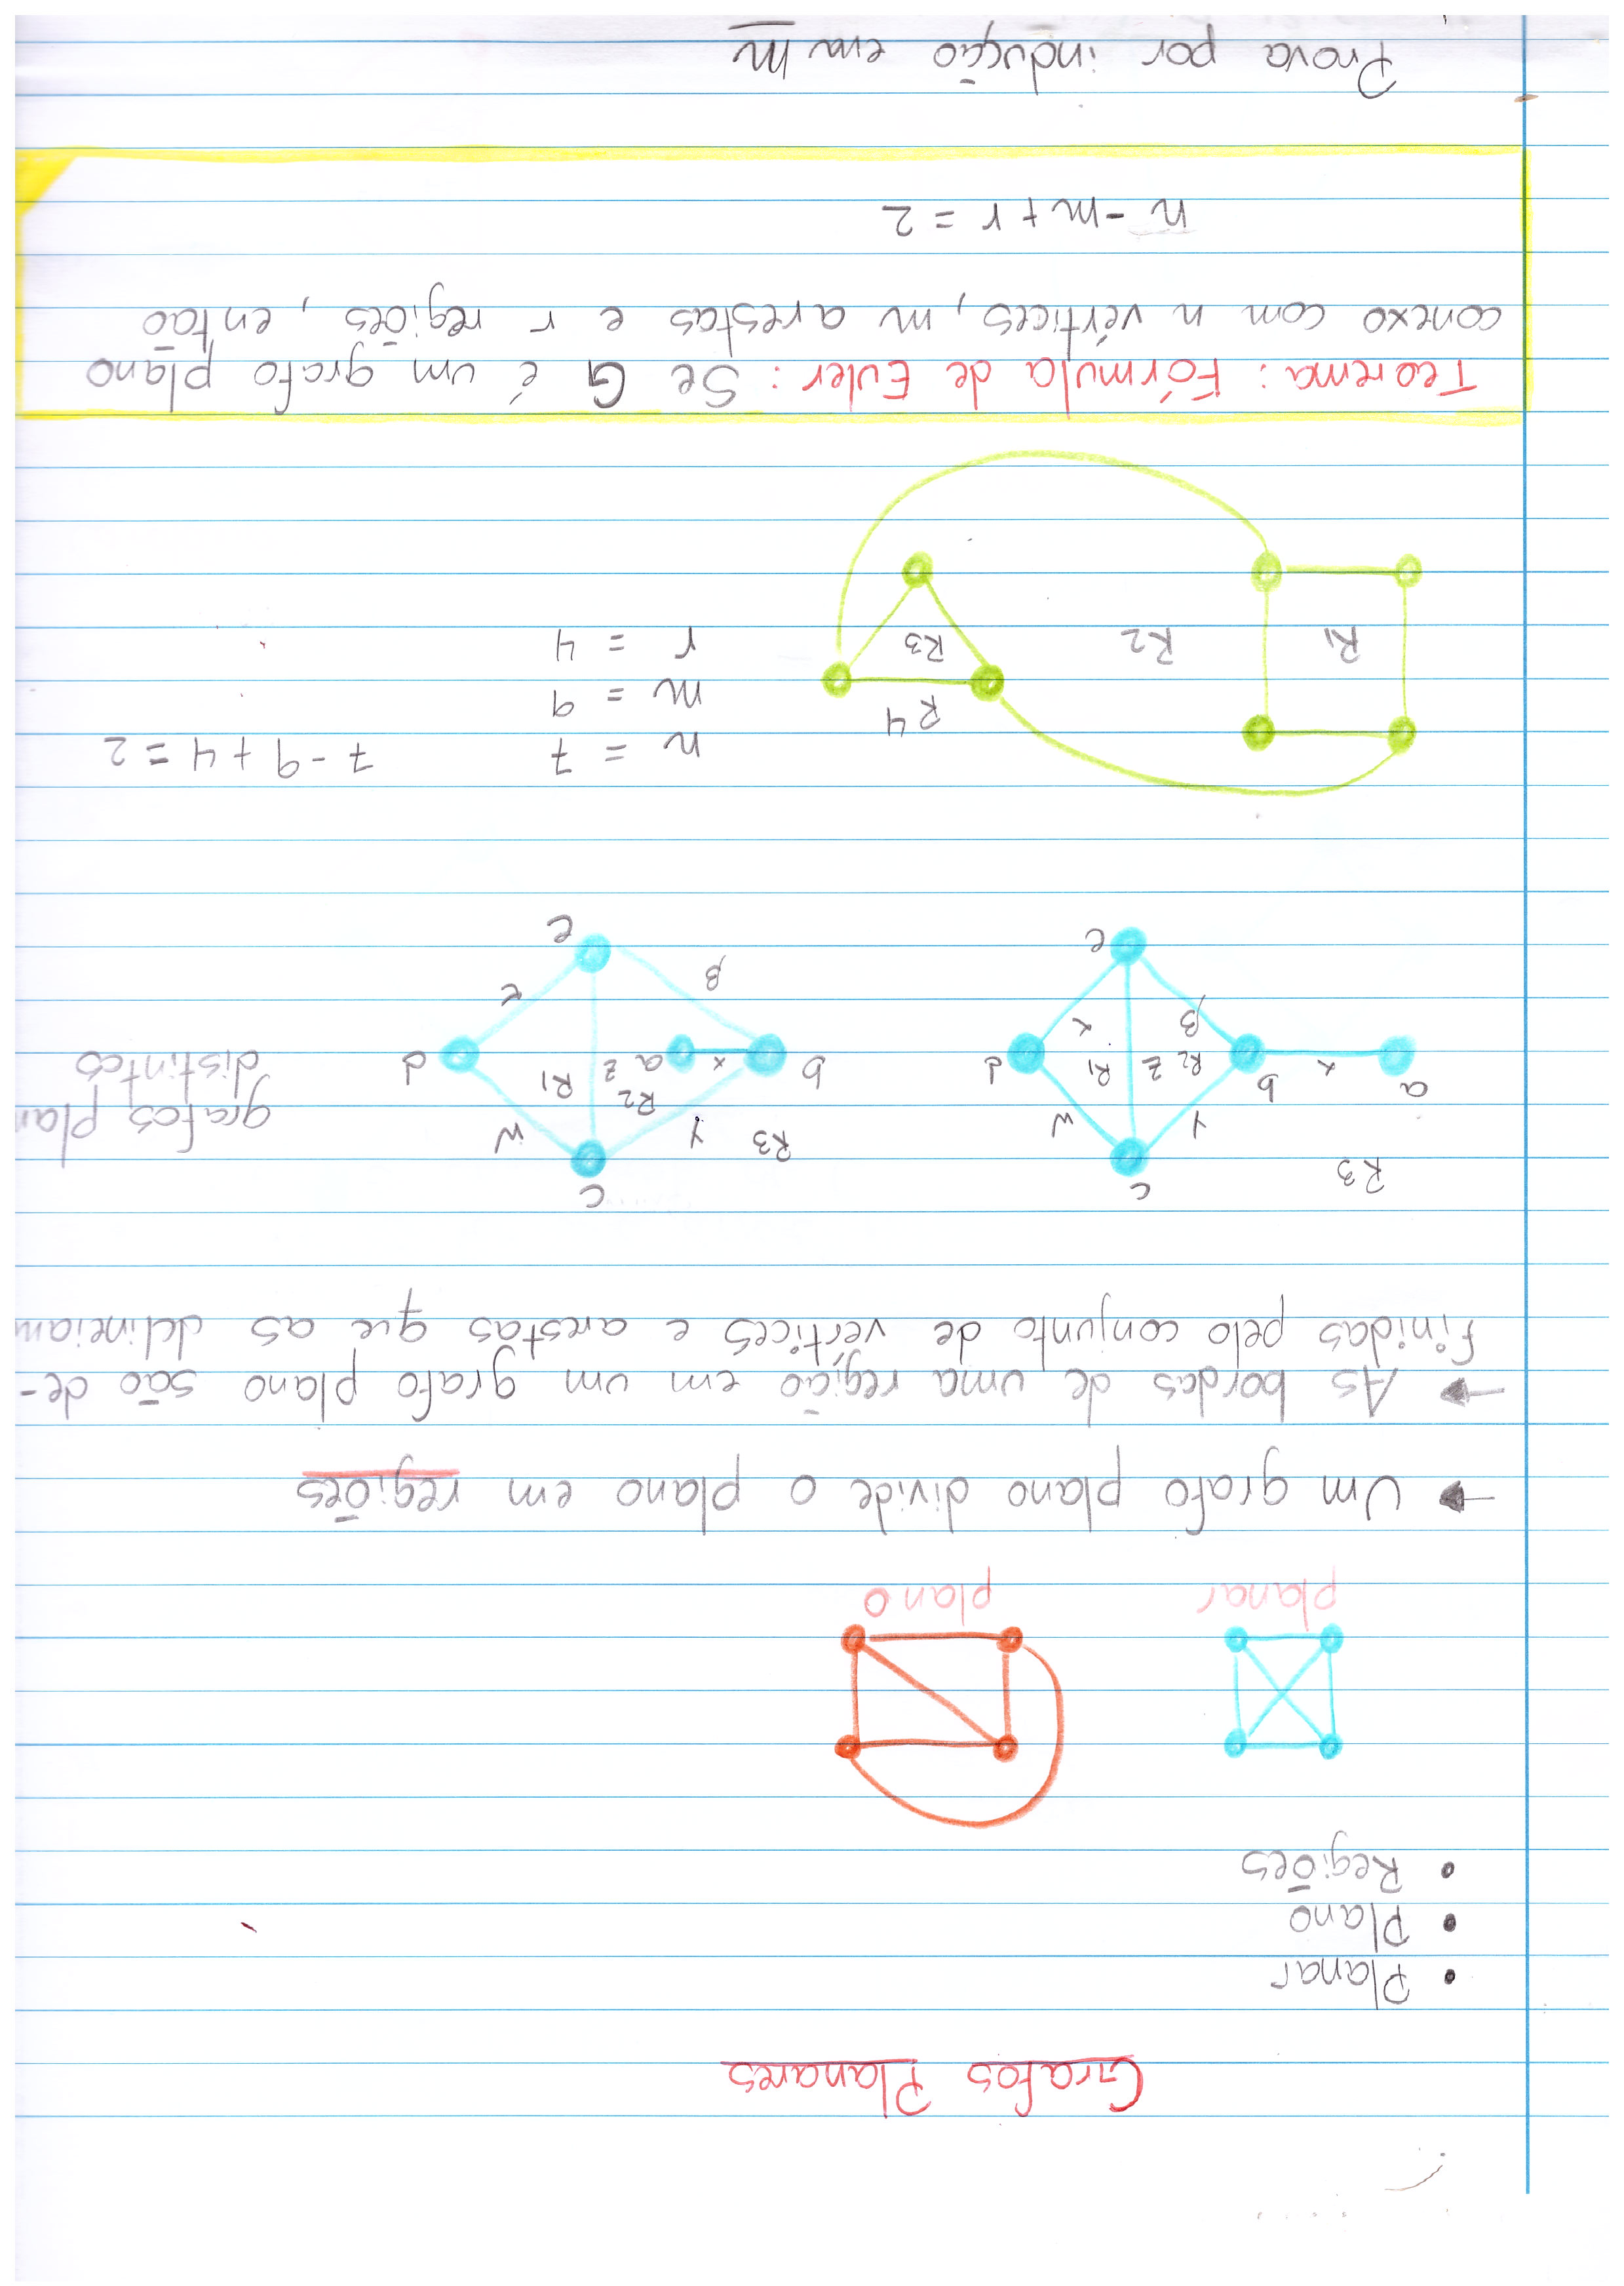 Grafos Planares
• Planar
• Plano
• Regiões
planar plano
→ Um grafo plano divide o plano em regiões
→ As bordas de uma região em um grafo plano são de-
finidas pelo conjunto de vértices e arestas que as delineiam
R3 c
a x b y w
R2 z R1 d
β α
e
R3 c
y w
R2 R1
b x a z d
β
e
grafos
distintos
n = 7 7 - 9 + 4 = 2
R4 m = 9
R1 R2 R3 r = 4
Teorema: Fórmula de Euler: Se G é um grafo plano
conexo com n vértices, m arestas e r regiões, então
n - m + r = 2
Prova por indução em m